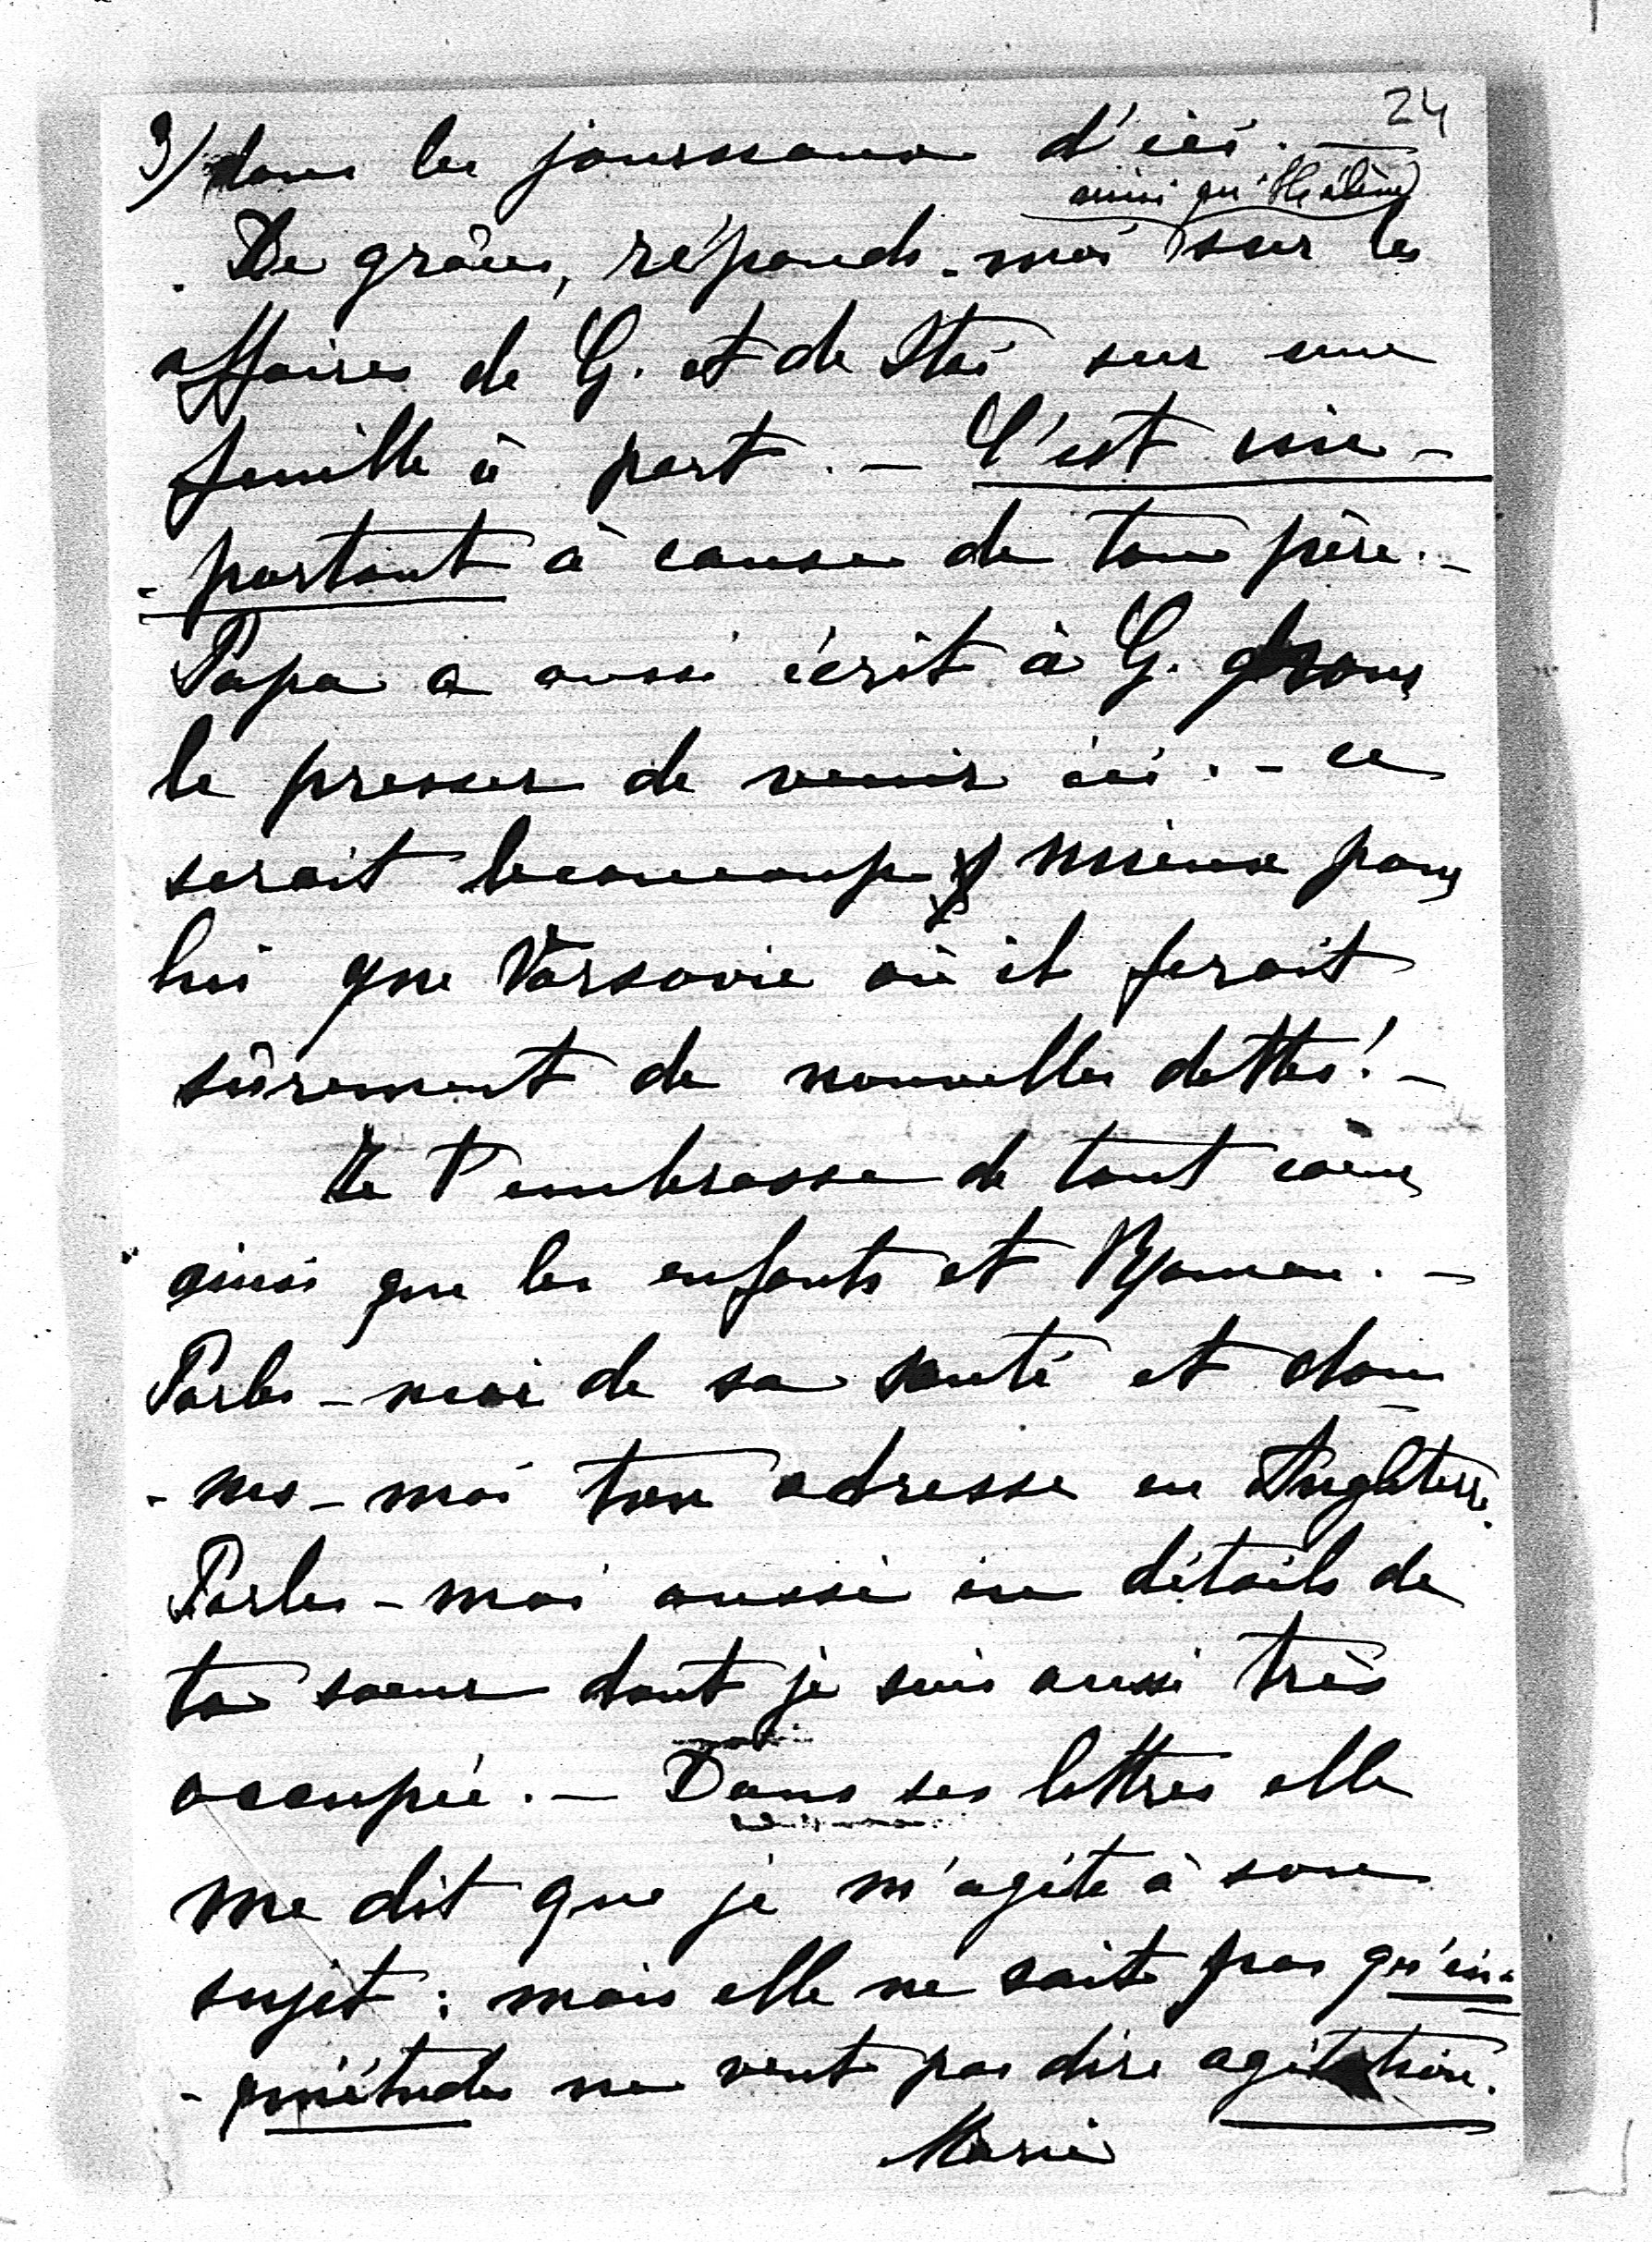 24
3/ dans les journaux d'ici. —
ainsi qu'Hélène
De grâce, réponds-moi sur les
affaires de G. et de Stas sur une
feuille à part. — C'est im-
-portant à cause de ton père. -
Papa a aussi écrit à G. pour
le presser de venir ici. - ce
serait beaucoup mieux pour
lui que Varsovie où il ferait
sûrement de nouvelles dettes! -
Je t'embrasse de tout coeur
ainsi que les enfants et Roman. -
Parles-moi de sa santé et don-
-nes-moi ton adresse en Angleterre.
Parles-moi aussi en détails de
ta soeur dont je suis aussi très
occupée. — Dans ses lettres elle
me dit que je m'agite à son
sujet : mais elle ne sait pas qu'in-
-quiétude ne veut pas dire agitation.
Marie